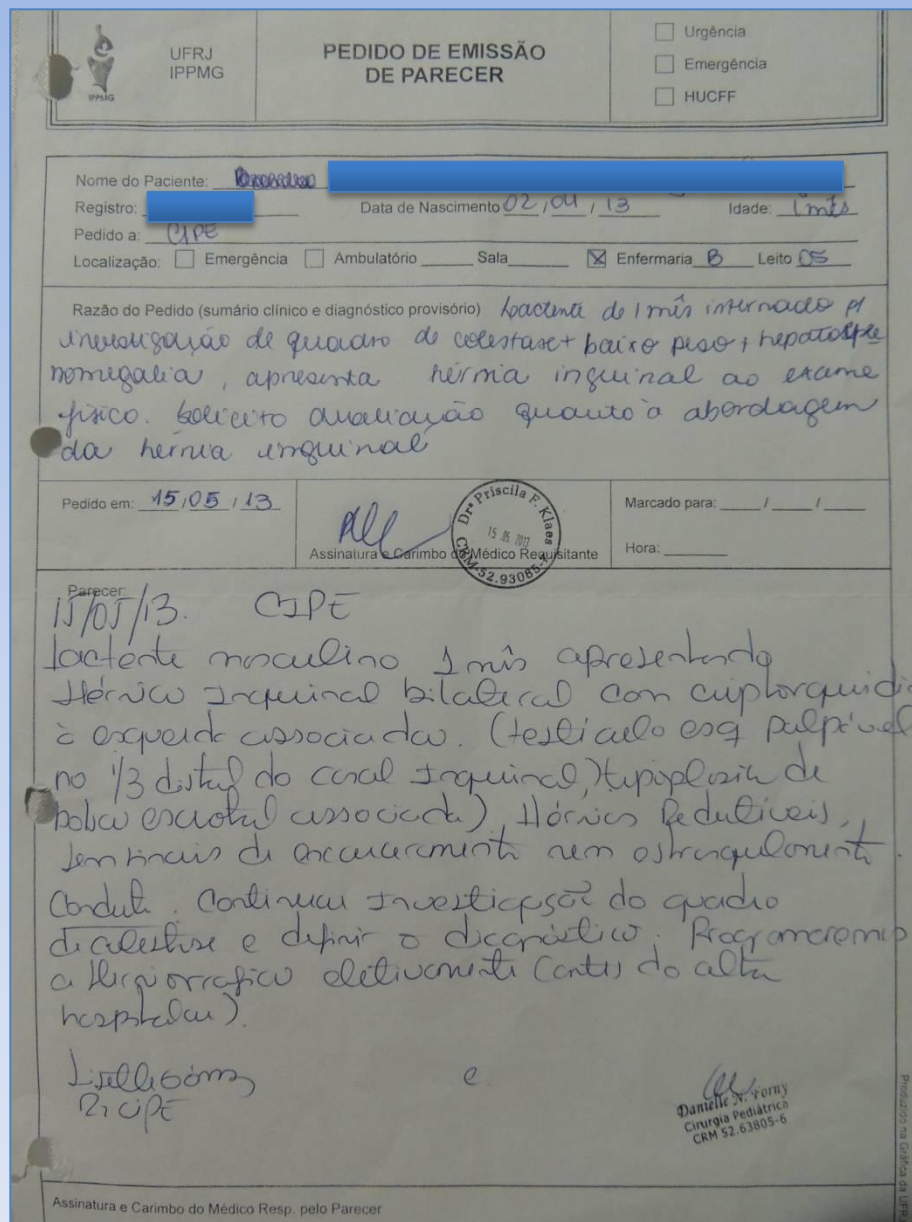 UFRJ
IPPMG
IPPMG
PEDIDO DE EMISSÃO
DE PARECER
Urgência
Emergência
HUCFF
Nome do Paciente:
Registro: Data de Nascimento 02/04/13 Idade: 1 mês
Pedido a: CIPE
Localização: Emergência Ambulatório Sala X Enfermaria B Leito 05
Razão do Pedido (sumário clínico e diagnóstico provisório) Lactente de 1 mês internado p/
investigação de quadro de colestase + baixo peso + hepatosple
nomegalia, apresenta hérnia inguinal ao exame
físico. Solicito avaliação quanto à abordagem
da hérnia inguinal
Pedido em: 15/05/13
Drª Priscila F. Klaes
15 .05. 2013
CRM-52.93085-
Assinatura e Carimbo do Médico Requisitante
Marcado para: / /
Hora:
Parecer:
15/05/13. CIPE
Lactente masculino 1 mês apresentando
Hérnia Inguinal bilateral com criptorquidia
à esquerda associada. (testículo esq palpável
no 1/3 distal do canal Inguinal, Hipoplasia de
bolsa escrotal associada) Hérnias Redutíveis,
sem sinais de encarceramento nem estrangulamento.
Conduta. Continuar Investigação do quadro
de colestase e definir o diagnóstico. Programaremos
a Herniorrafia eletivamente (antes da alta
hospitalar).
CIPE
Danielle N. Forny
Cirurgia Pediátrica
CRM 52.63805-6
Assinatura e Carimbo do Médico Resp. pelo Parecer
Produzido na Gráfica da UFRJ